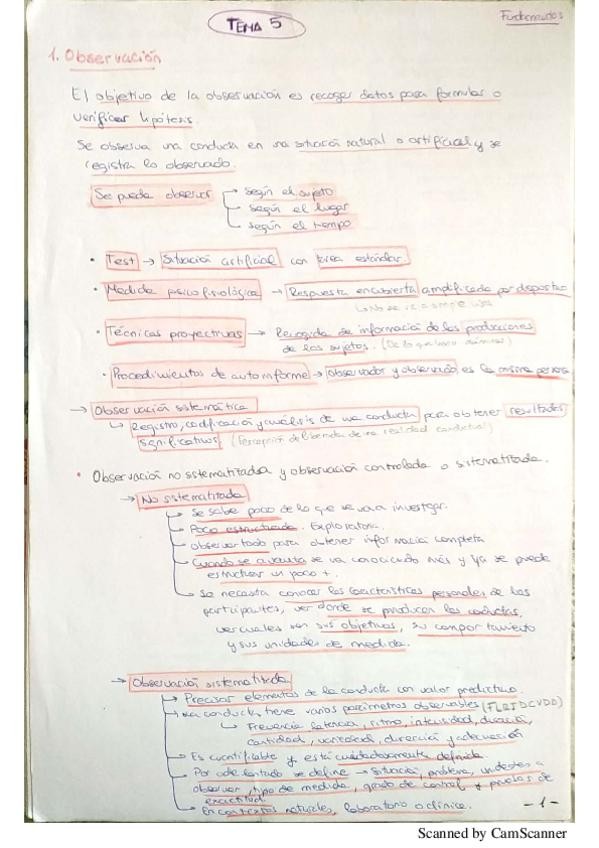 TEMA 5
Fundamentos
1. Observación
El objetivo de la observación es recoger datos para formular o
verificar hipótesis.
Se observa una conducta en una situación natural o artificial y se
registra lo observado.
Se puede observar
según el sujeto
según el lugar
según el tiempo
• Test → Situación artificial con tarea estándar.
• Medida psicofisiológica → Respuesta encubierta amplificada por dispositivo
No se ve a simple vista
• Técnicas proyectivas → Recogida de información de las producciones
de los sujetos. (De lo que hacen
• Procedimientos de autoinforme → observador y observado es la misma persona
→ Observación sistemática
↳ Registro, codificación y análisis de una conducta para obtener resultados
significativos (Percepción deliberada de una realidad conductual)
• Observación no sistematizada y observación controlada o sistematizada.
→ No sistematizada
Se sabe poco de lo que se va a investigar.
Poco estructurada. Exploratoria.
observar todo para obtener información completa
Cuando se avanza se va conociendo más y ya se puede
estructurar un poco +.
Se necesita conocer las características personales de los
participantes, ver donde se producen las conductas,
ver cuales son sus objetivos, su comportamiento
y sus unidades de medida.
→ Observación sistematizada
Precisar elementos de la conducta con valor predictivo.
La conducta tiene varios parámetros observables (FLRIDCVDD)
↳ Frecuencia latencia, ritmo, intensidad, duración,
cantidad, variedad, dirección y adecuación
Es cuantificable y está cuidadosamente definida
Por adelantado se define → Situación, problema, unidades a
observar, tipo de medida, grado de control y pruebas de
exactitud.
En contextos naturales, laboratorio o clínica.
-1-
Scanned by CamScanner